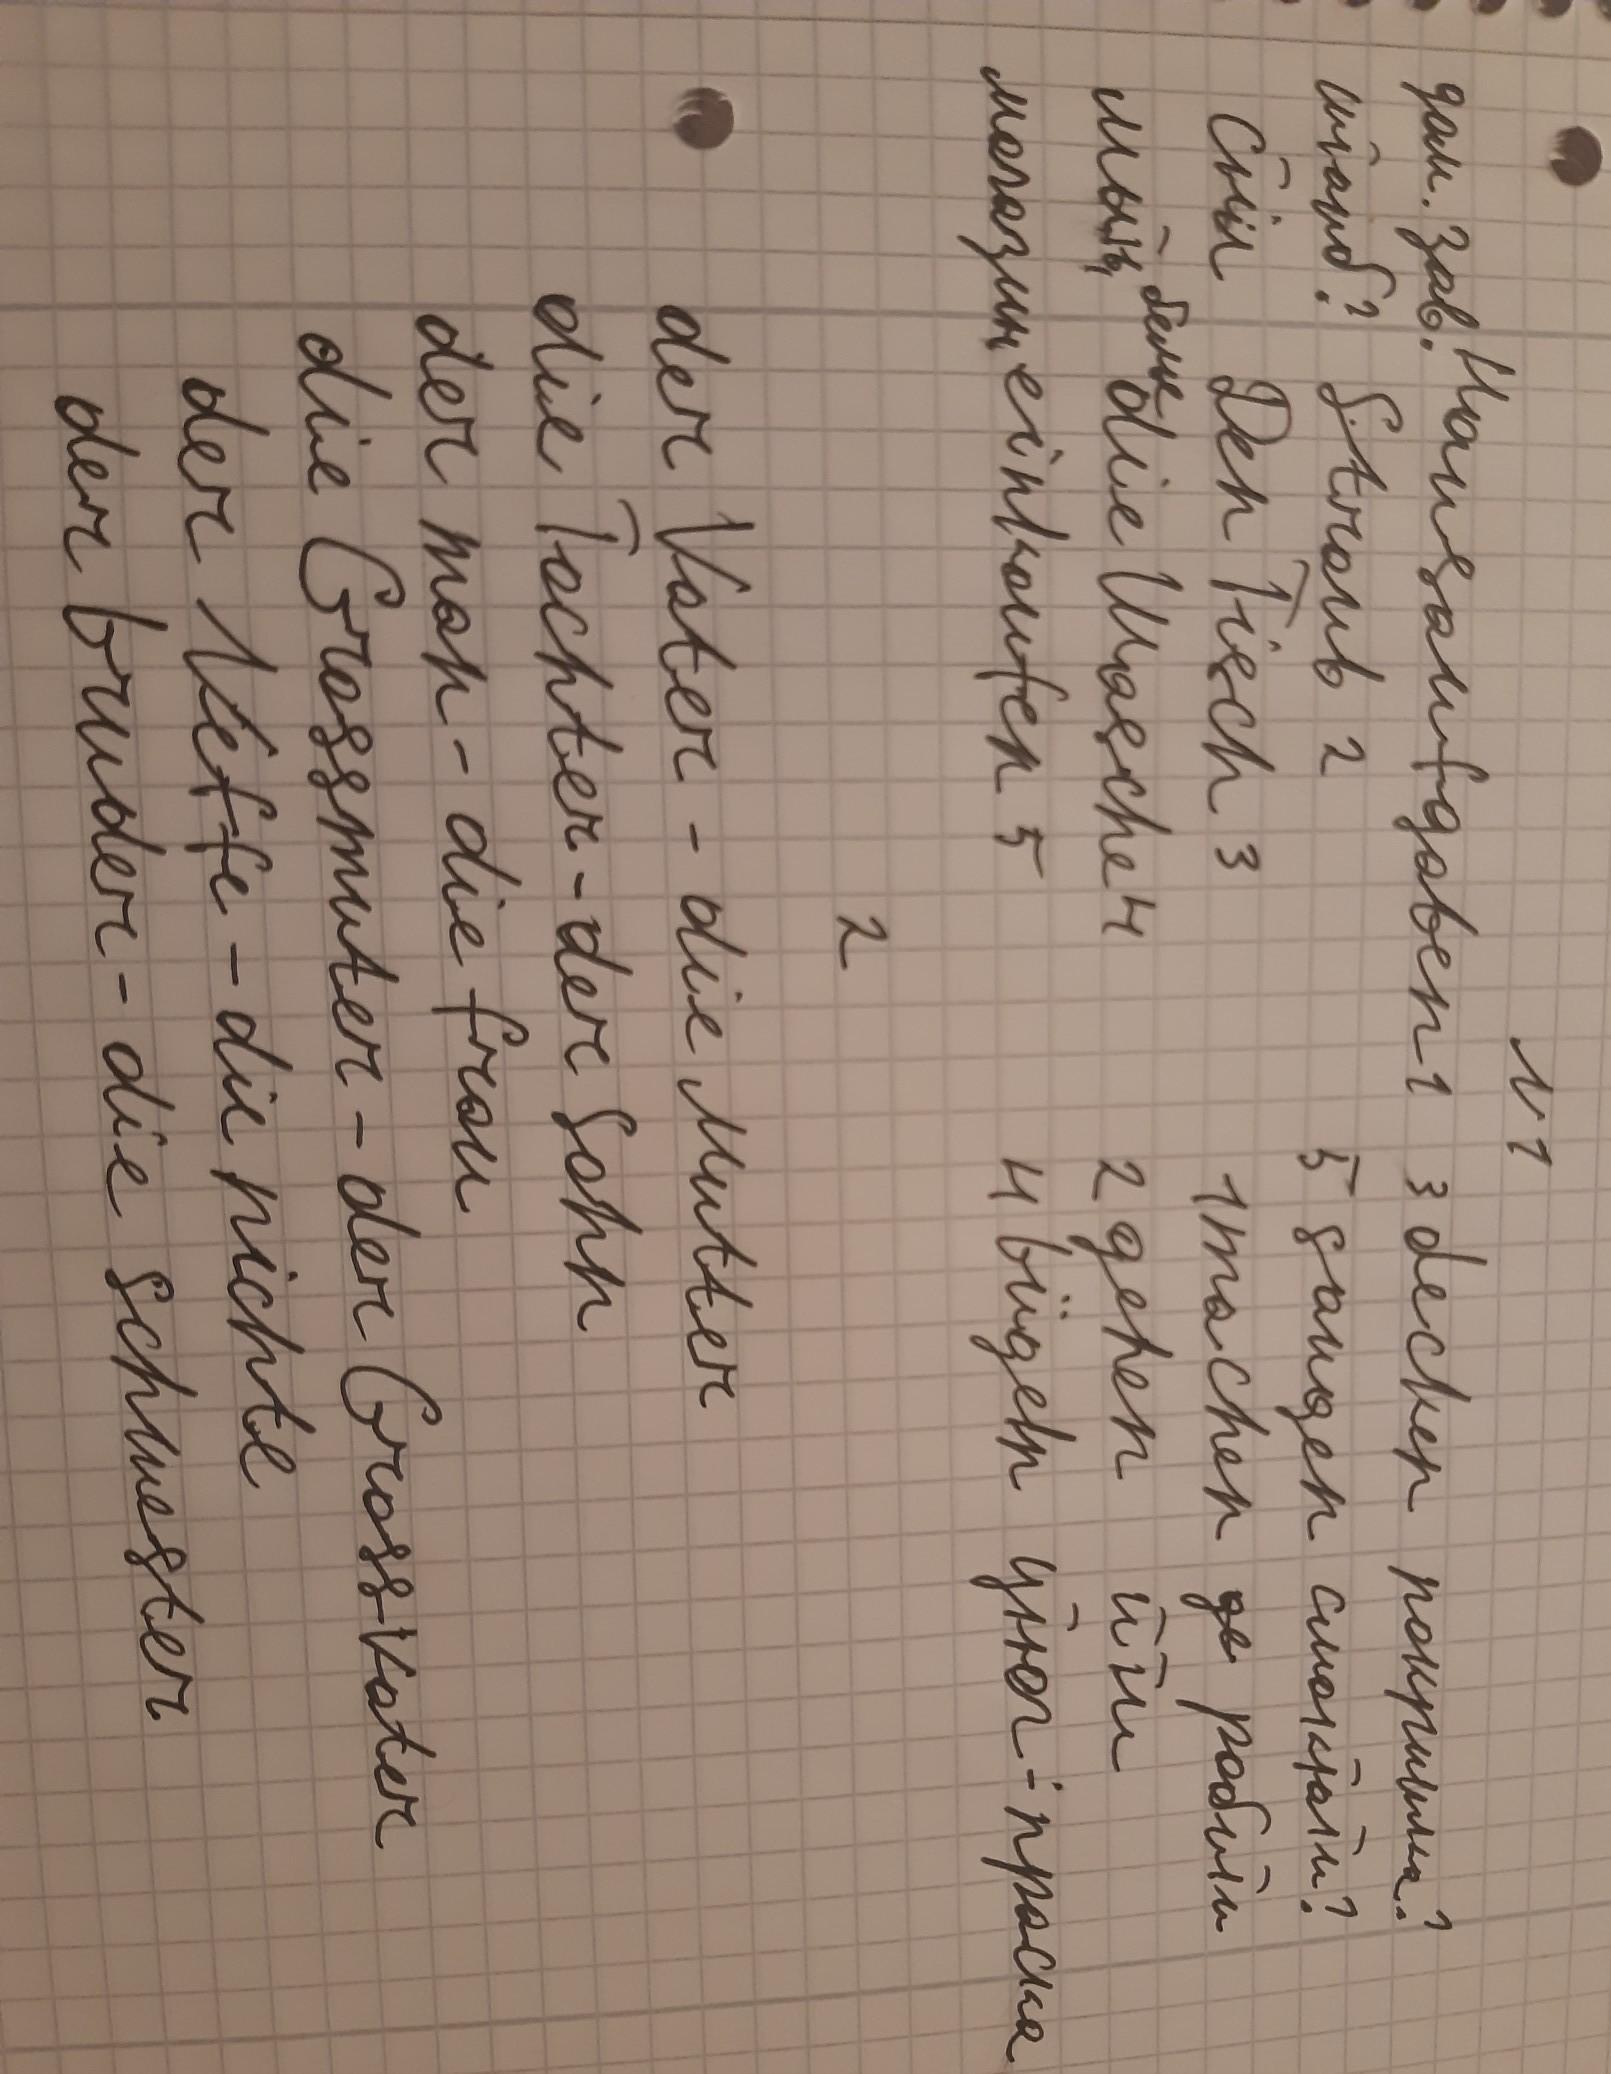 N1
дом. зав. Hausaufgaben 1 3 decken покришка?
штауб? Staub 2 5 saugen смоктати?
Стіл Den Tisch 3 1 machen робити
Мыть белье die Wasche 4 2 gehen йти
магазин, einkaufen 5 4 bügeln утюг-праска
2
der Vater - die Mutter
die Tochter - der Sohn
der man - die frau
die Grossmuter - der Grossvater
der Neffe - die nichte
der bruder - die schwester